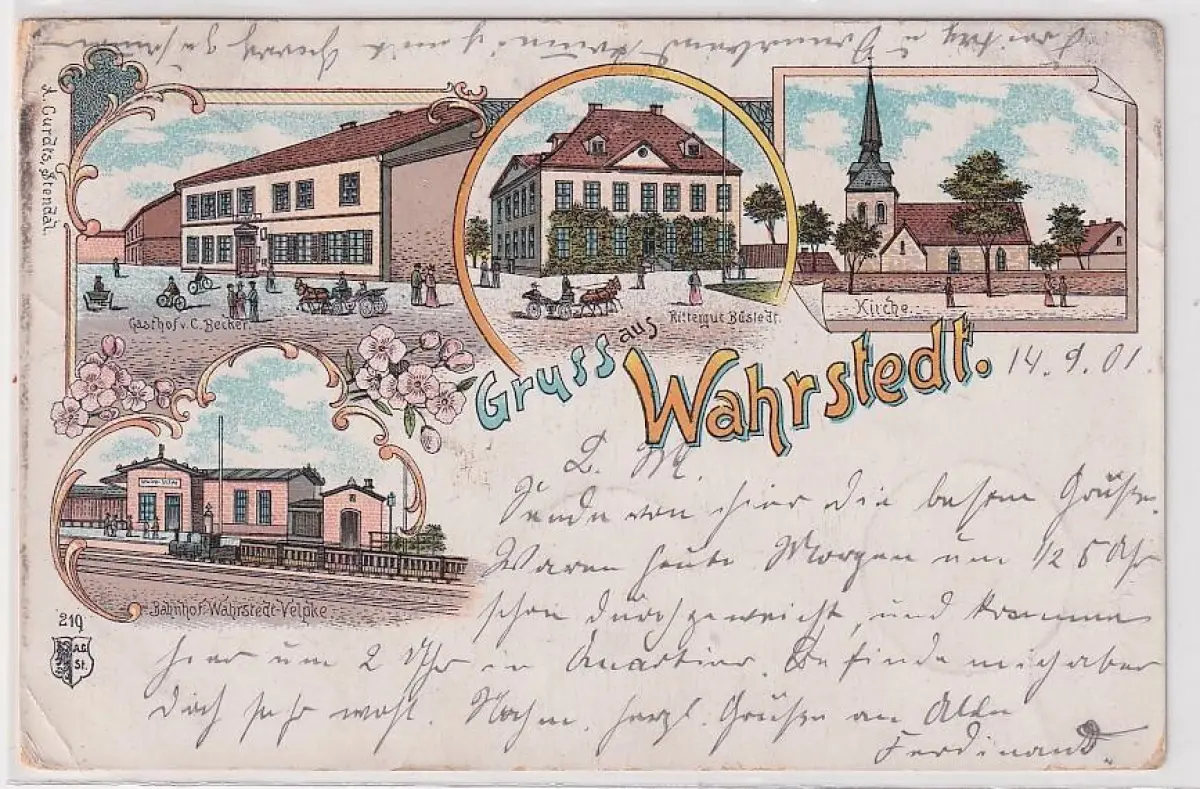 A. Curdts, Stendal.
Gasthof v. C. Becker.
Rittergut Büstedt.
Kirche.
Gruss aus Wahrstedt.
14. 9. 01.
Bahnhof Wahrstedt-Velpke
219
A.C.
St.
L. M.
Sende von hier die besten Grüße.
Waren heute Morgen um 1/2 5 Uhr
schon durchgeweicht, und kommen
hier um 2 Uhr in Quartier. Befinde mich aber
doch sehr wohl. Nochm. herzl. Grüße an Alle
Ferdinand.